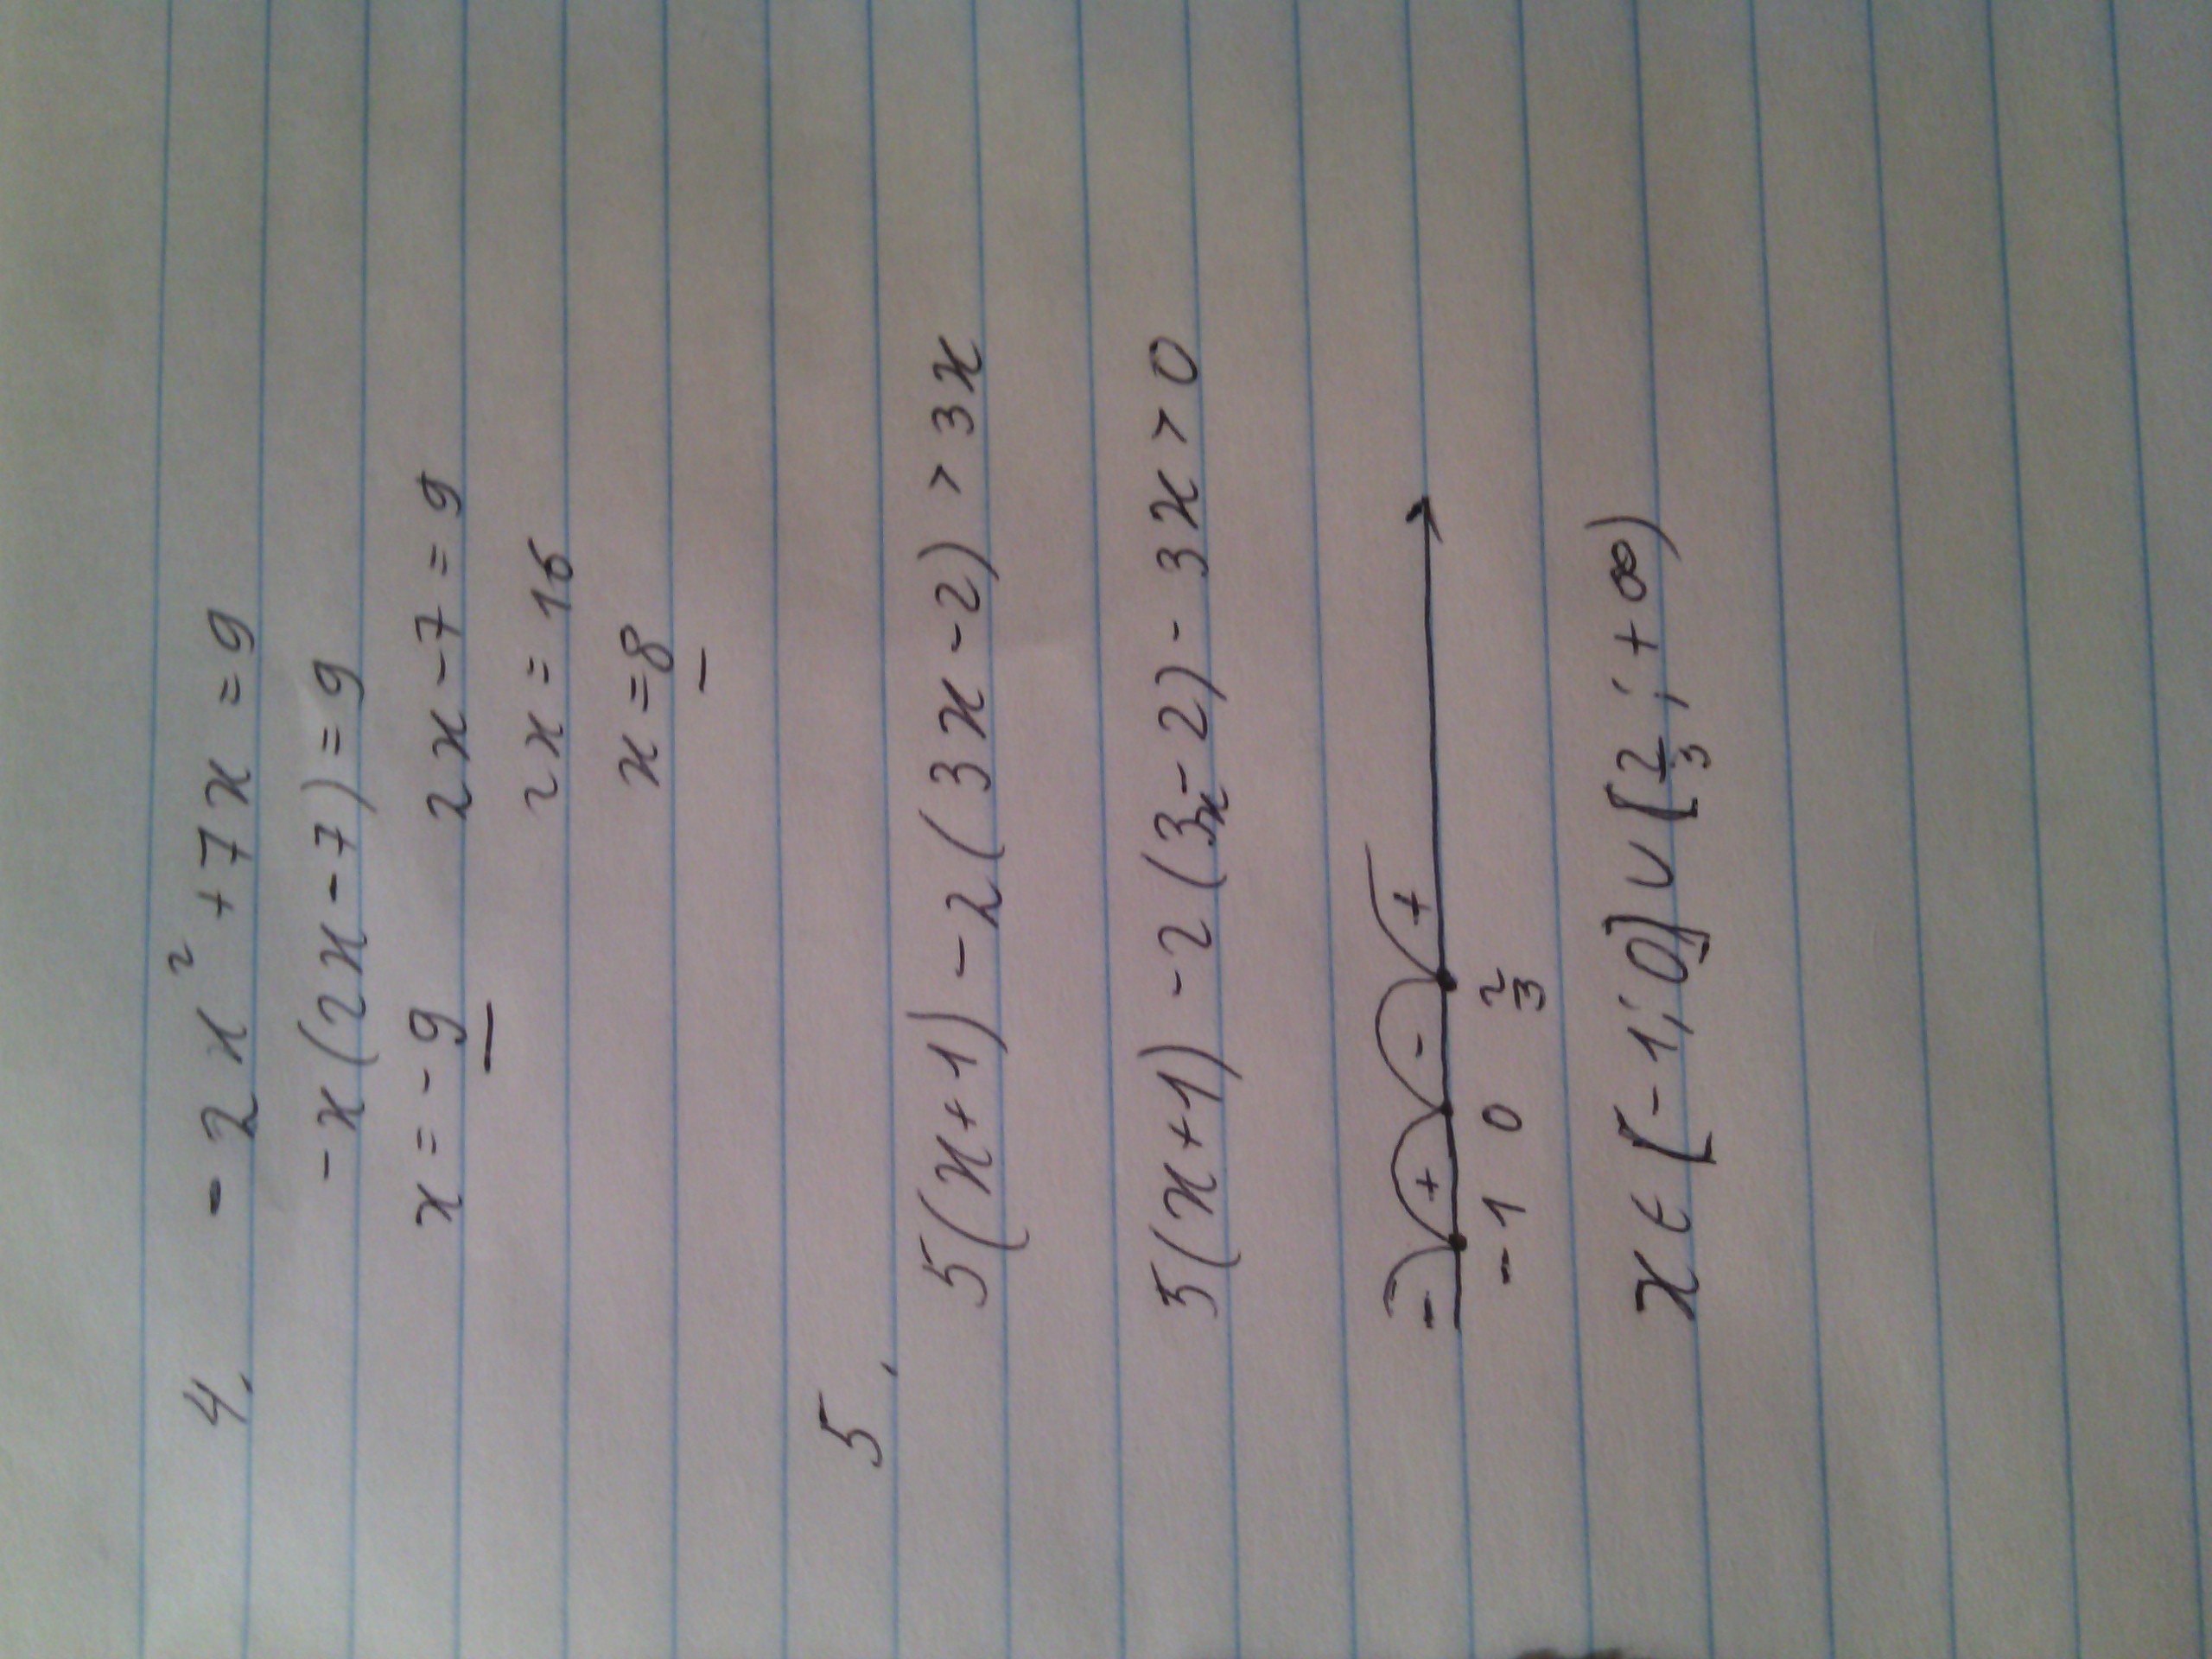 4. - 2x² + 7x = 9
- x(2x - 7) = 9
x = - 9 2x - 7 = 9
2x = 16
x = 8
5.
5(x + 1) - 2(3x - 2) > 3x
5(x + 1) - 2(3x - 2) - 3x > 0
- + - +
-1 0 2/3
x ∈ [-1; 0] ∪ [2/3; +∞)